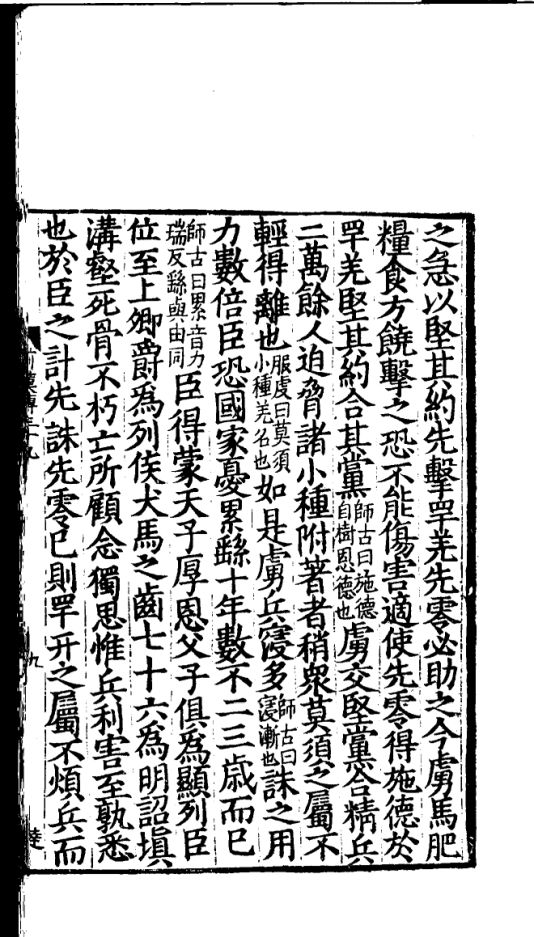 之急以堅其約先擊罕羌先零必助之今虜馬肥
糧食方饒擊之恐不能傷害適使先零得施德於
罕羌堅其約合其黨師古曰施德自樹恩德也虜交堅黨合精兵
二萬餘人迫脅諸小種附著者稍衆莫須之屬不
輕得離也服虔曰莫須小種羌名也如是虜兵寖多師古曰寖漸也誅之用
力數倍臣恐國家憂累繇十年數不二三歲而已
師古曰累音力瑞反繇與由同臣得蒙天子厚恩父子俱爲顯列臣
位至上卿爵爲列侯犬馬之齒七十六爲明詔塡
溝壑死骨不朽亡所顧念獨思惟兵利害至孰悉
也於臣之計先誅先零已則罕开之屬不煩兵而
前漢傳三十九
九